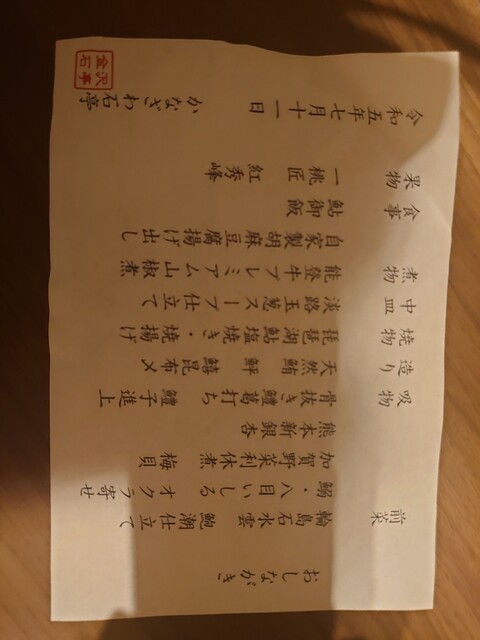 おしながき
前菜 輪島石水雲 鮑潮仕立て
鰯・八目いしる オクラ寄せ
加賀野菜利休煮 梅貝
熊本新銀杏
吸物 骨抜き鱧葛打ち 鱧子進上
造り 天然鮪 鮃 鱚昆布〆
焼物 琵琶湖鮎塩焼き・焼揚げ
中皿 淡路玉葱スープ仕立て
煮物 能登牛プレミアム山椒煮
自家製胡麻豆腐揚げ出し
食事 鮎御飯
果物 一桃匠 紅秀峰
令和五年七月十一日 かなざわ石亭
金沢石亭